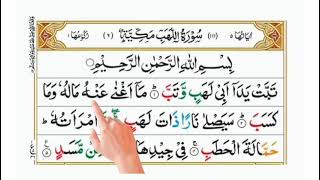 اٰيَاتُهَا ٥ سُوْرَةُ اللَّهَبِ مَكِّيَّةٌ (١١١) (٦) رُكُوْعُهَا ١
بِسْمِ اللهِ الرَّحْمٰنِ الرَّحِيْمِ
تَبَّتْ يَدَاۤ اَبِيْ لَهَبٍ وَّتَبَّ ۝١ مَاۤ اَغْنٰى عَنْهُ مَالُهٗ وَمَا
كَسَبَ ۝٢ سَيَصْلٰى نَارًا ذَاتَ لَهَبٍ ۝٣ وَّامْرَاَتُهٗ
حَمَّالَةَ الْحَطَبِ ۝٤ فِيْ جِيْدِهَا مِّنْ مَّسَدٍ ۝٥